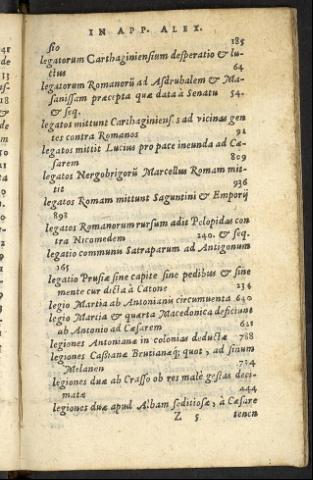 IN APP. ALEX.
sio 185
legatorum Carthaginiensium desperatio & lu-
ctus 64
legatorum Romanorū ad Asdrubalem & Ma-
sanissam præcepta quæ data à Senatu 54.
& seq.
legatos mittunt Carthaginiens s ad vicinas gen
tes contra Romanos 91
legatos mittit Lucius pro pace ineunda ad Cæ-
sarem 809
legatos Nergobrigorū Marcellus Romam mit-
tit 936
legatos Romam mittunt Saguntini & Emporij
898
legatos Romanorum rursum adit Pelopidas con
tra Nicomedem 240. & seq.
legatio communis Satraparum ad Antigonum
265
legatio Prusiæ sine capite sine pedibus & sine
mente cur dicta à Catone 236
legio Martia ab Antonianis circumuenta 640
legio Martia & quarta Macedonica deficiunt
ab Antonio ad Cæsarem 621
legiones Antonianæ in colonias deductæ 788
legiones Caßianæ Brutianæq; quot, ad sinum
Melanen 734
legiones duæ ab Crasso ob res malè gestas deci-
matæ 444
legiones duæ apud Albam seditiosæ, à Cæsare
Z 5 tenen